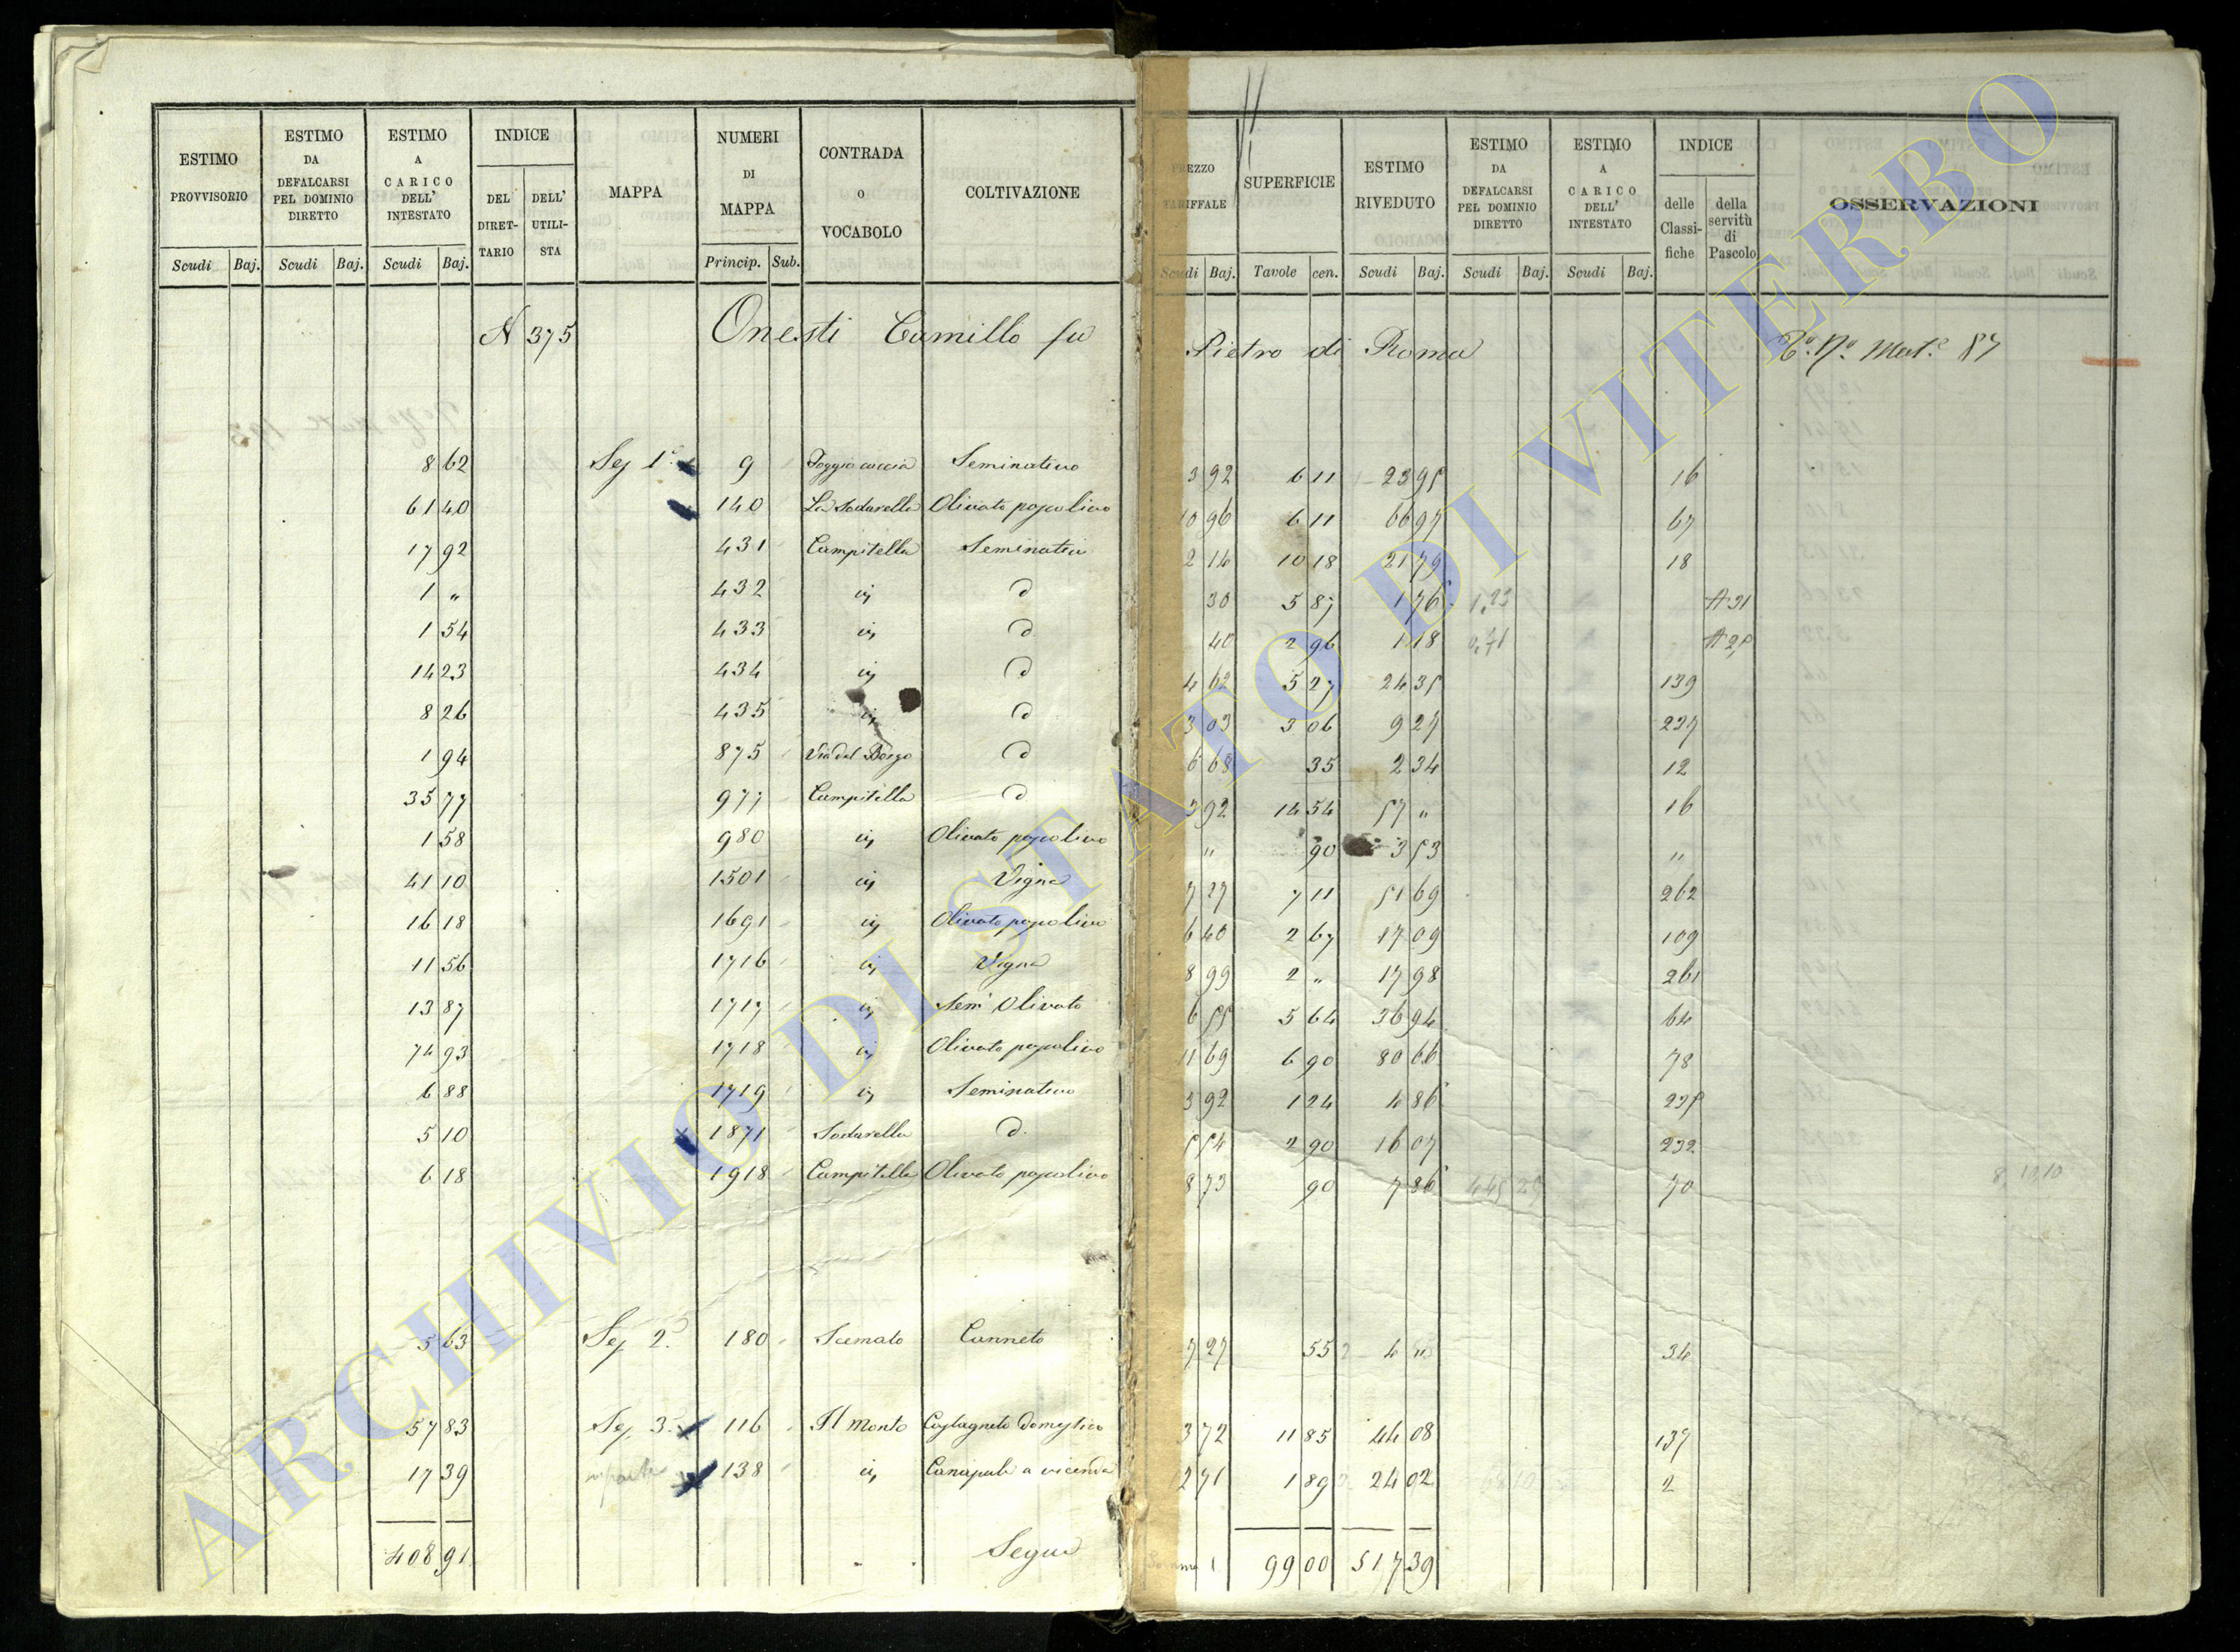 ESTIMO PROVVISORIO | ESTIMO DA DEFALCARSI PEL DOMINIO DIRETTO | ESTIMO A CARICO DELL' INTESTATO | INDICE | MAPPA | NUMERI DI MAPPA | CONTRADA O VOCABOLO | COLTIVAZIONE | PREZZO TARIFFALE | SUPERFICIE | ESTIMO RIVEDUTO | ESTIMO DA DEFALCARSI PEL DOMINIO DIRETTO | ESTIMO A CARICO DELL' INTESTATO | INDICE | OSSERVAZIONI
DEL DIRETTARIO | DELL' UTILISTA | delle Classifiche | della servitù di Pascolo
Scudi Baj. | Scudi Baj. | Scudi Baj. | Princip. Sub. | Scudi Baj. | Tavole cen. | Scudi Baj. | Scudi Baj. | Scudi Baj.
N 375 Onesti Camillo fu Pietro di Roma
8 62 Sez 1ª 9 Poggio coccia Seminativo 3 92 6 11 23 95 16
61 40 140 La Sodarella Olivato 10 96 6 11 66 97 67
17 92 431 Campitella Seminativo 2 14 10 18 21 79 18
1 " 432 iv d 30 5 87 1 76 1,23 A 31
1 54 433 iv d 40 2 96 1 18 A 25
14 23 434 iv d 4 62 5 27 24 35 139
8 26 435 iv d 3 03 3 06 9 27 237
1 94 875 Via del Borgo d 6 68 35 2 34 12
35 77 977 Campitella d 3 92 14 54 57 " 16
1 58 980 iv Olivato " 90 3 53 "
41 10 1501 iv Vigna 7 27 7 11 51 69 262
16 18 1691 iv Olivato 6 40 2 67 17 09 109
11 56 1716 iv Vigna 8 99 2 " 17 98 261
13 87 1717 iv Semº Olivato 6 55 5 64 36 94 64
74 93 1718 iv Olivato 11 69 6 90 80 66 78
6 88 1719 iv Seminativo 3 92 1 24 4 86 235
5 10 1871 Sodarella d. 5 54 2 90 16 07 232
6 18 1918 Campitella Olivato 8 73 90 7 86 70
5 63 Sez 2ª 180 Scemato Canneto 7 27 55 4 " 34
57 83 Sez 3ª 116 Il Monte Castagneto Domestico 3 72 11 85 44 08 137
17 39 138 iv Canapule a vicenda 2 71 1 89 24 02 2
408 91 Segue Somma 99 00 517 39
ARCHIVIO DI STATO DI VITERBO